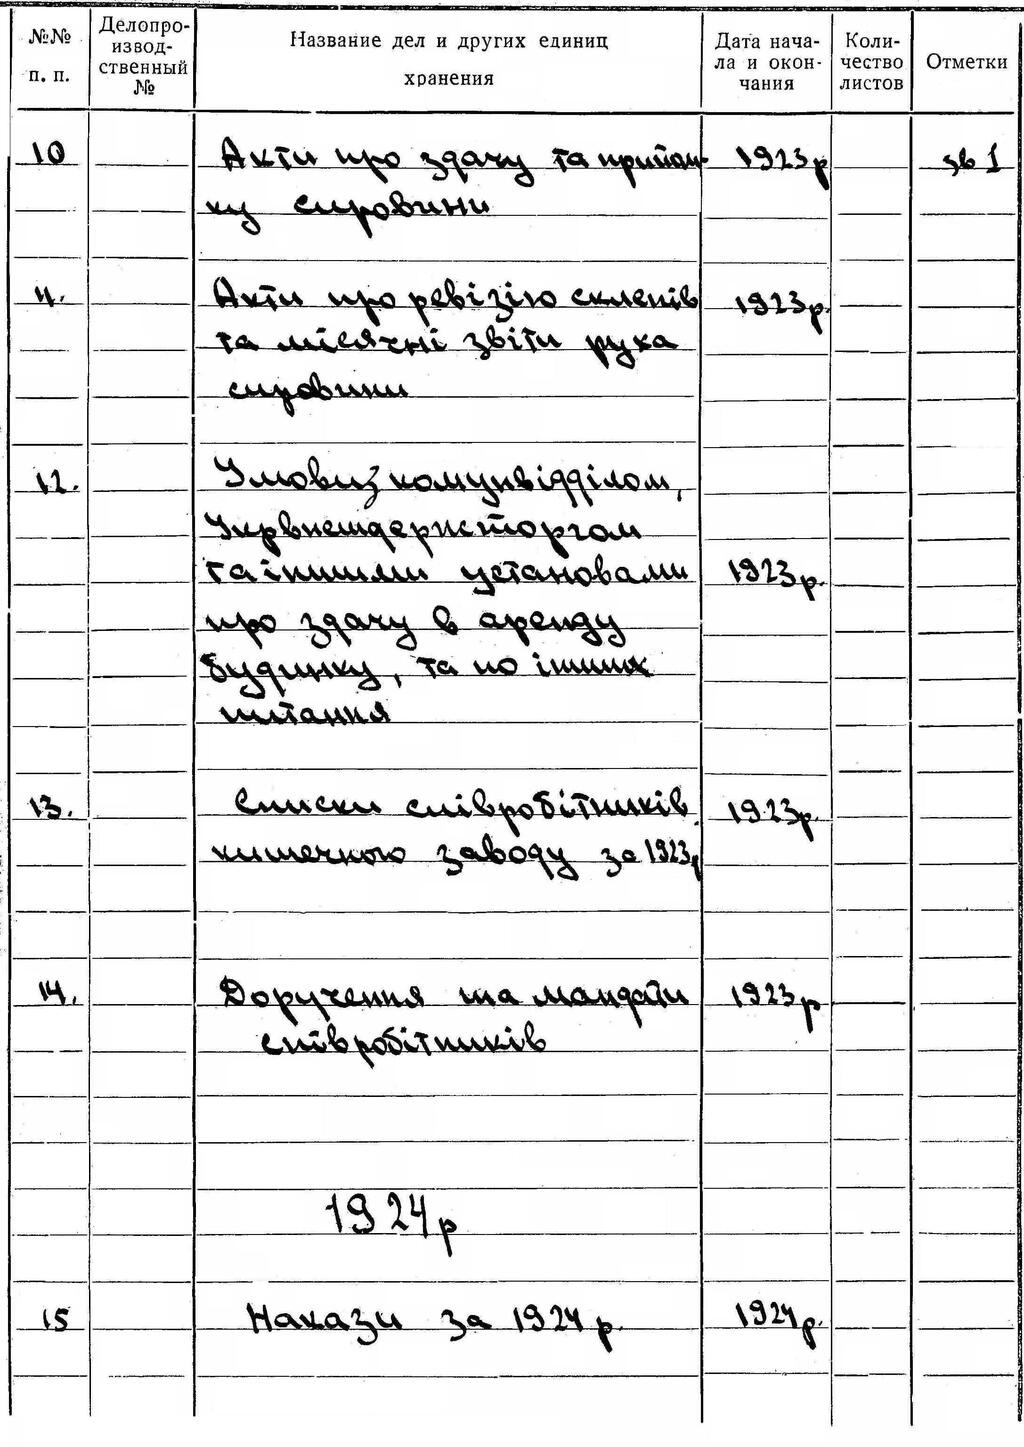 №№ п. п.
Делопро-
извод-
ственный
№
Название дел и других единиц
хранения
Дата нача-
ла и окон-
чания
Коли-
чество
листов
Отметки
10 Акти про здачу та прийом- 1923р зв 1
ку сировини
11. Акти про ревізію склепів 1923р.
та місячні звіти руха
сировини
12. Умови з комунвідділом,
Укрвнешдержторгом
та іншими установами 1923р.
про здачу в аренду
будинку, та по інших
питання
13. Списки співробітників 1923р.
кишечного заводу за 1923р
14. Доручення та мандати 1923р
співробітників
1924р
15 Накази за 1924р. 1924р.